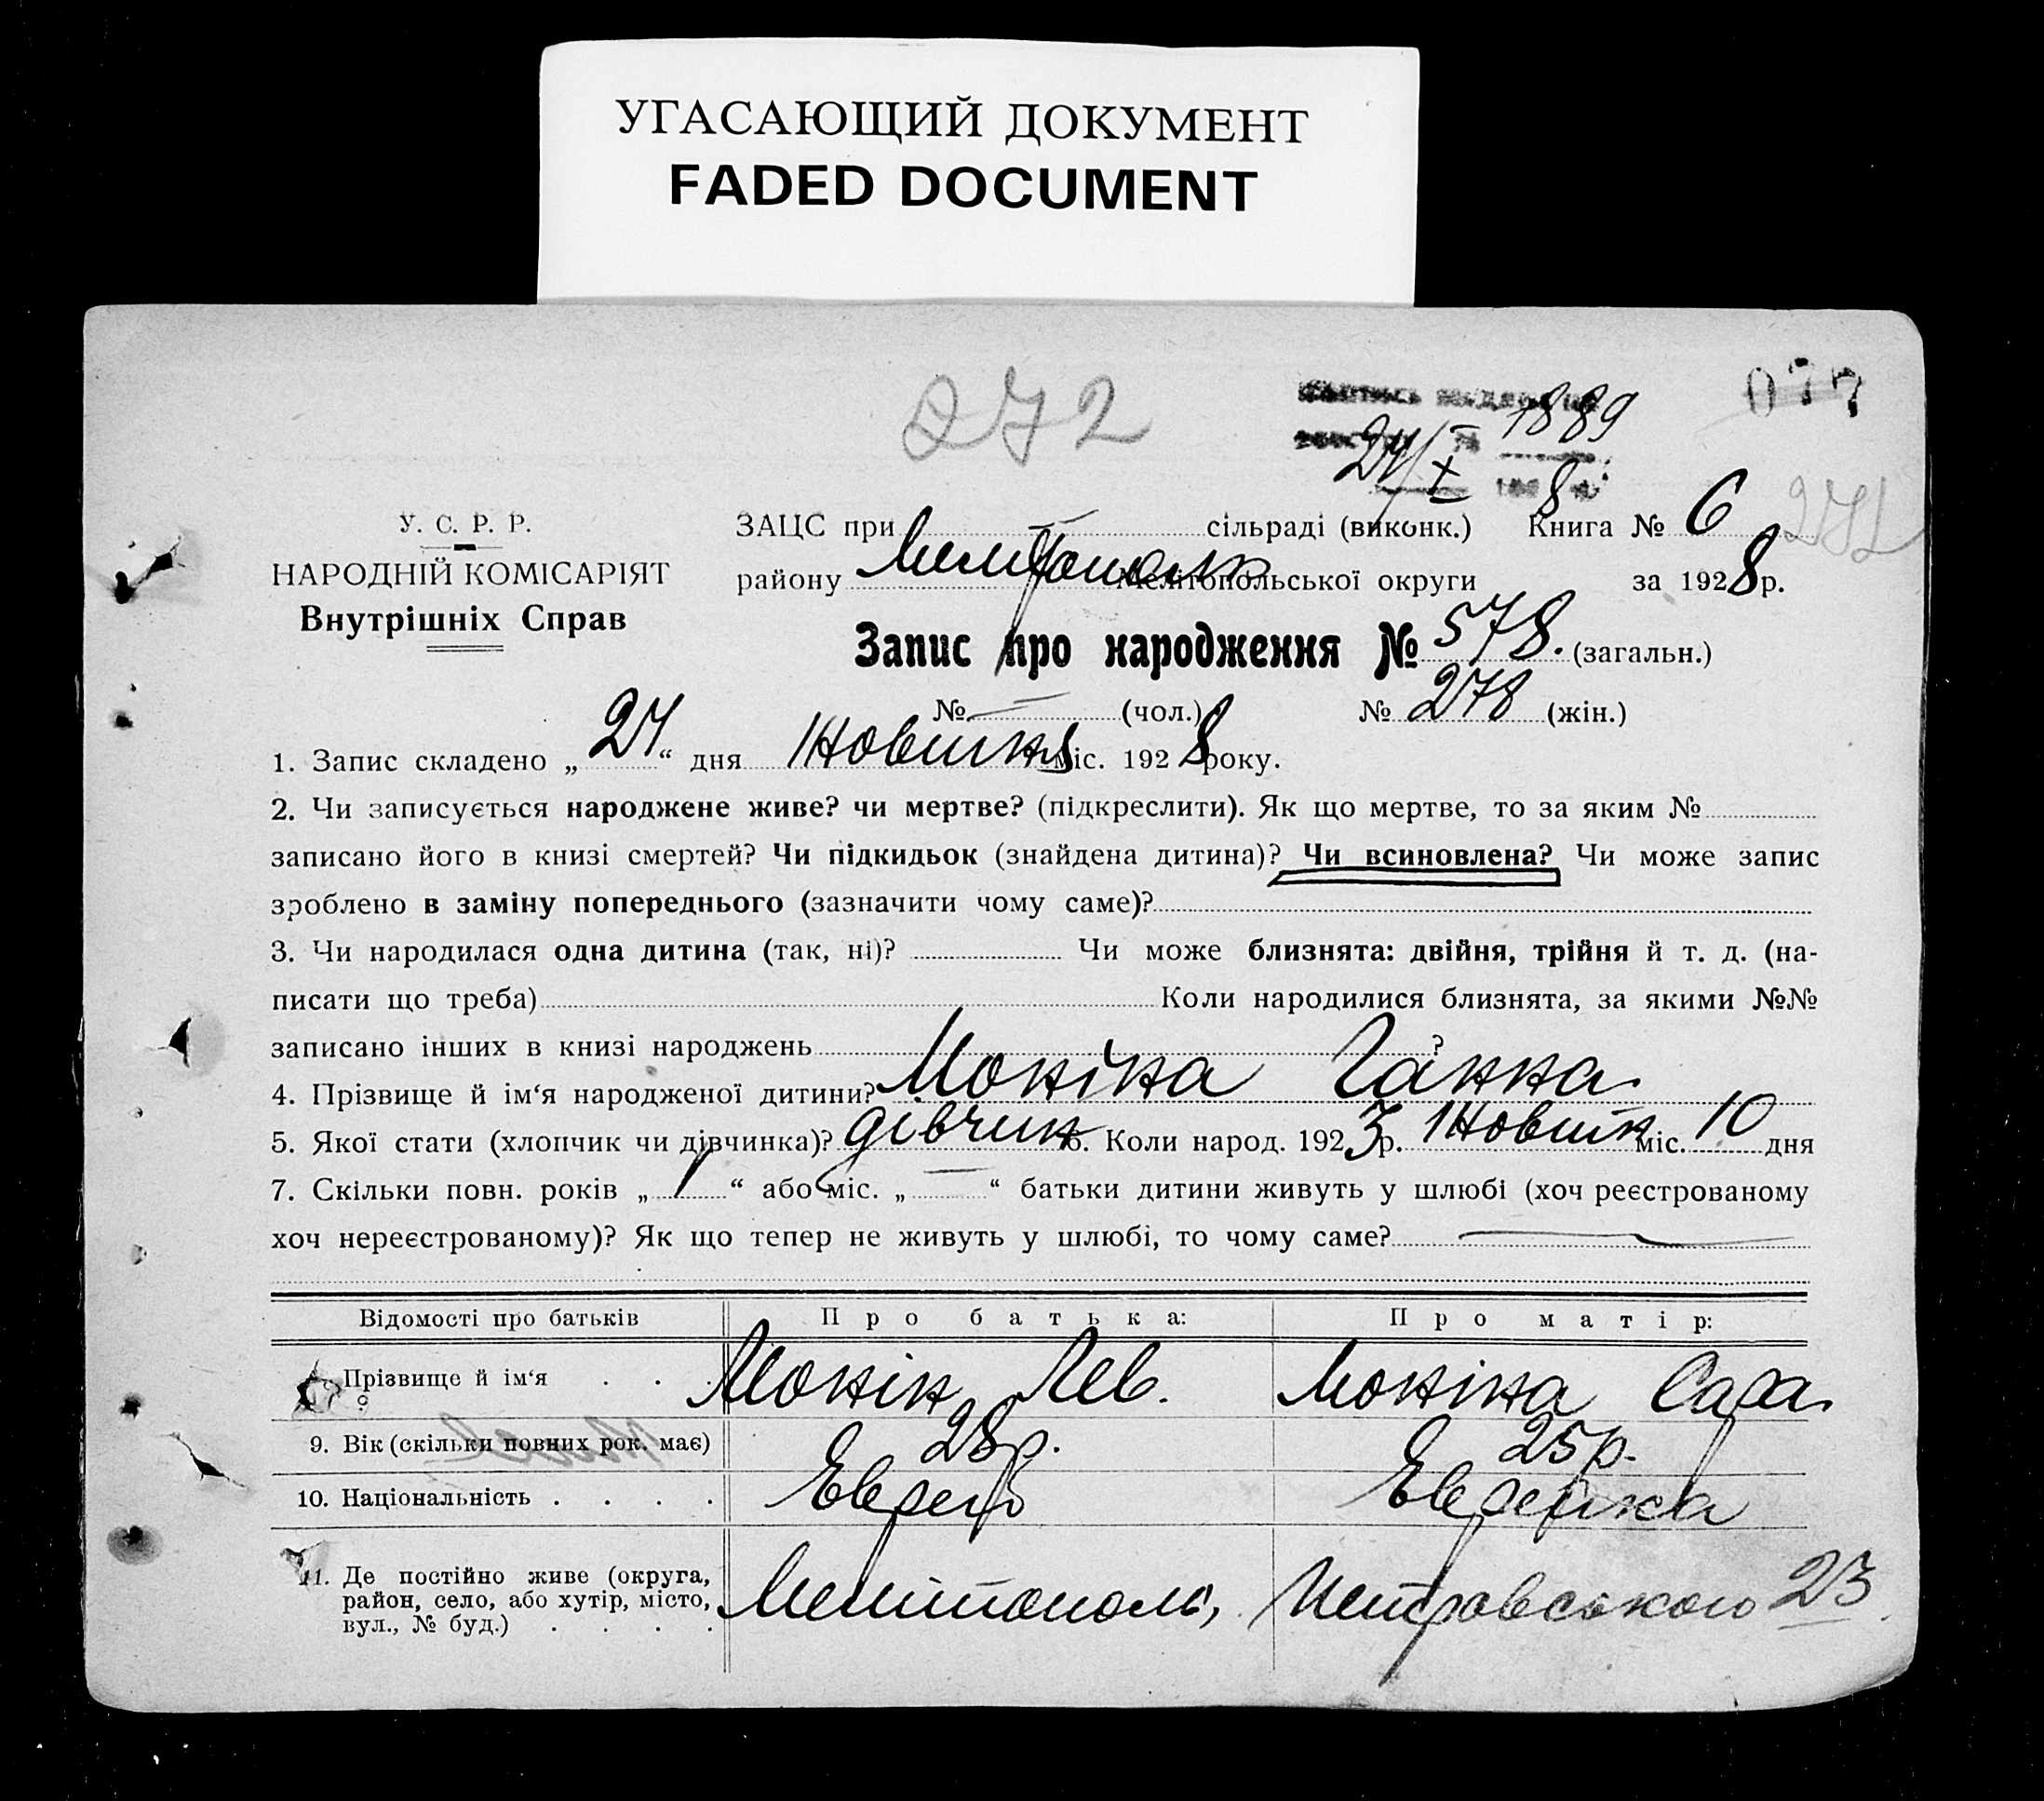 УГАСАЮЩИЙ ДОКУМЕНТ
FADED DOCUMENT
077
272
1889
24/X 8
272
У. С. Р. Р.
НАРОДНІЙ КОМІСАРІЯТ
Внутрішніх Справ
ЗАЦС при сільраді (виконк.) Книга № 6
району Мелітопольськ Мелітопольської округи за 1928 р.
Запис про народження № 578. (загальн.)
№ — (чол.) № 278 (жін.)
1. Запис складено „ 24 “ дня Жовтня міс. 1928 року.
2. Чи записується народжене живе? чи мертве? (підкреслити). Як що мертве, то за яким №
записано його в книзі смертей? Чи підкидьок (знайдена дитина)? Чи всиновлена? Чи може запис
зроблено в заміну попереднього (зазначити чому саме)?
3. Чи народилася одна дитина (так, ні)? Чи може близнята: двійня, трійня й т. д. (на-
писати що треба) Коли народилися близнята, за якими №№
записано інших в книзі народжень ?
4. Прізвище й ім‘я народженої дитини? Моніна Ганна
5. Якої стати (хлопчик чи дівчинка)? дівчинк 6. Коли народ. 1923 р. Жовтн міс. 10 дня
7. Скільки повн. років „ 1 “ або міс. „ — “ батьки дитини живуть у шлюбі (хоч реєстрованому
хоч нереєстрованому)? Як що тепер не живуть у шлюбі, то чому саме? —
Відомості про батьків Про батька: Про матір:
Прізвище й ім‘я . . . Монін Лев. Моніна Сара
9. Вік (скільки повних рок. має) 28 р. 25 р.
10. Національність . . . . Еврей Еврейка
11. Де постійно живе (округа,
район, село, або хутір, місто, Мелітополь, Петровського 23
вул., № буд.) . . . .